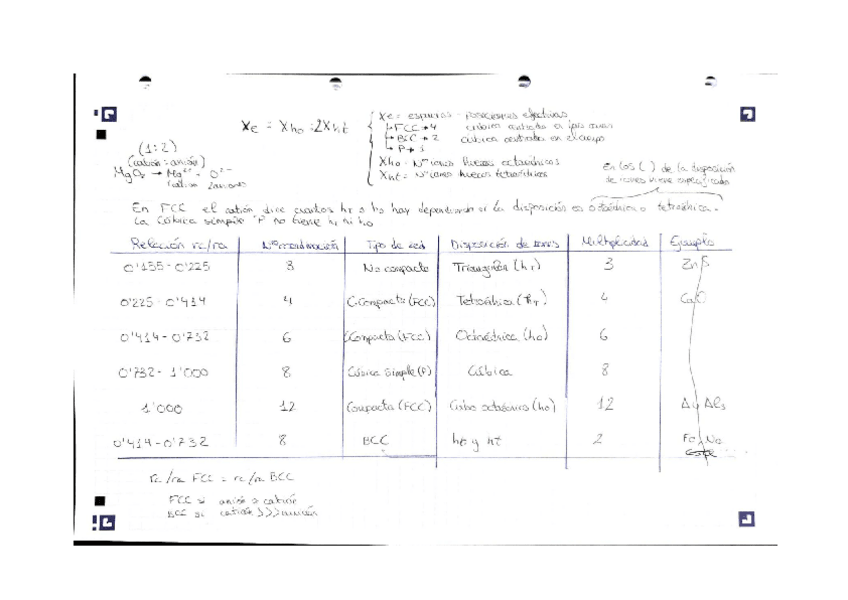 Xe = Xho = 2Xht
Xe = espacios - posiciones efectivas
FCC → 4 cúbica centrada en las caras
BCC → 2 cúbica centrada en el cuerpo
P → 
Xho = Nº iones huecos octaédricos
Xht = Nº iones huecos tetraédricos
(1:2)
(catión:anión)
MgO₂ → Mg²⁺ - O²⁻
1 catión 2 aniones
En los ( ) de la disposición
de iones viene especificado
En FCC el catión dice cuantos ht s ho hay dependiendo si la disposición es octaédrica o tetraédrica.
La cúbica simple "P" no tiene ht ni ho
Relación rc/ra Nº coordinación Tipo de red Disposición de iones Multiplicidad Ejemplo
0'155-0'225 3 No compacto Triangular (ht) 3 ZnS
0'225-0'414 4 C.Compacta (FCC) Tetraédrica (hT) 4 CaO
0'414-0'732 6 Compacta (FCC) Octaédrica (ho) 6
0'732-1'000 8 Cúbica Simple (P) Cúbica 8
1'000 12 Compacta (FCC) Cubo octaédrico (ho) 12
0'414-0'732 8 BCC ht y ht 2
rc/ra FCC = rc/ra BCC
FCC si anión > catión
BCC si catión >>> anión